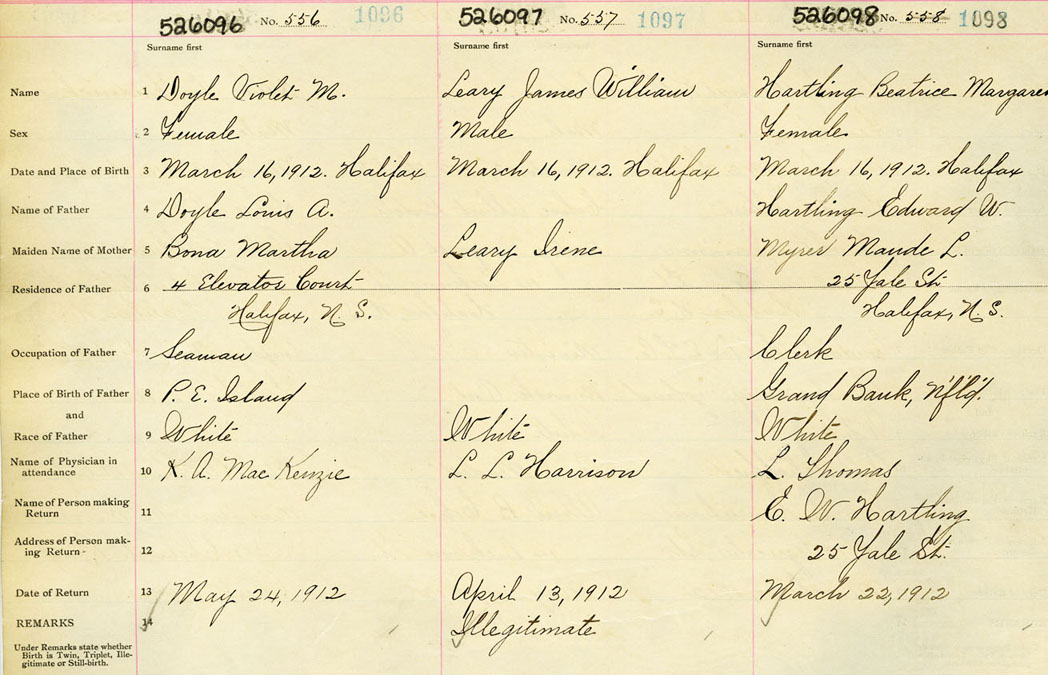 526096 No. 556 1096 526097 No. 557 1097 526098 No. 558 1098
Surname first Surname first Surname first
Name 1 Doyle Violet M. Leary James William Hartling Beatrice Margare
Sex 2 Female Male Female
Date and Place of Birth 3 March 16, 1912. Halifax March 16, 1912. Halifax March 16, 1912. Halifax
Name of Father 4 Doyle Louis A. Hartling Edward W.
Maiden Name of Mother 5 Bona Martha Leary Irene Myrer Maude L.
Residence of Father 6 4 Elevator Court 25 Yale St.
Halifax, N. S. Halifax, N. S.
Occupation of Father 7 Seaman Clerk
Place of Birth of Father 8 P. E. Island Grand Bank, Nfld.
and
Race of Father 9 White White White
Name of Physician in
attendance 10 K. A. MacKenzie L. L. Harrison L. Thomas
Name of Person making
Return 11 E. W. Hartling
Address of Person mak-
ing Return - 12 25 Yale St.
Date of Return 13 May 24, 1912 April 13, 1912 March 22, 1912
REMARKS 14 Illegitimate
Under Remarks state whether
Birth is Twin, Triplet, Ille-
gitimate or Still-birth.